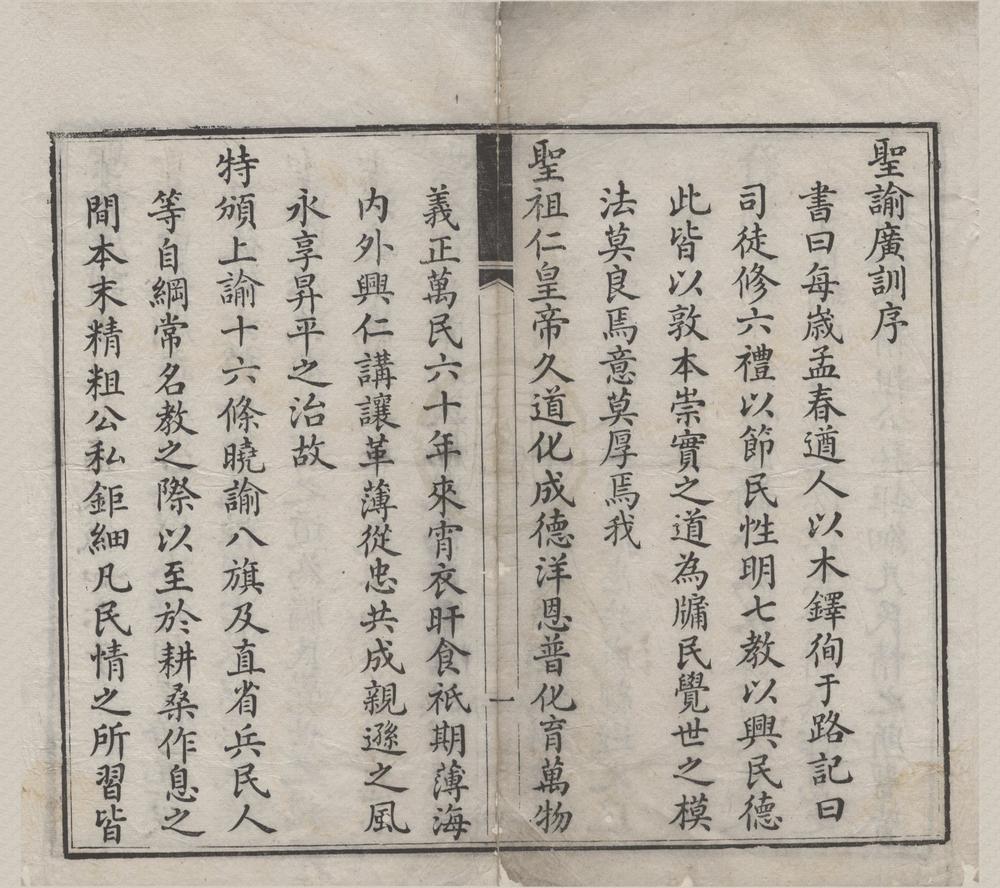 聖諭廣訓序
書曰每歲孟春遒人以木鐸徇于路記曰
司徒修六禮以節民性明七教以興民德
此皆以敦本崇實之道為牖民覺世之模
法莫良焉意莫厚焉我
聖祖仁皇帝久道化成德洋恩普化育萬物
一
義正萬民六十年來宵衣旰食祇期薄海
内外興仁講讓革薄從忠共成親遜之風
永享昇平之治故
特頒上諭十六條曉諭八旗及直省兵民人
等自綱常名教之際以至於耕桑作息之
間本末精粗公私鉅細凡民情之所習皆